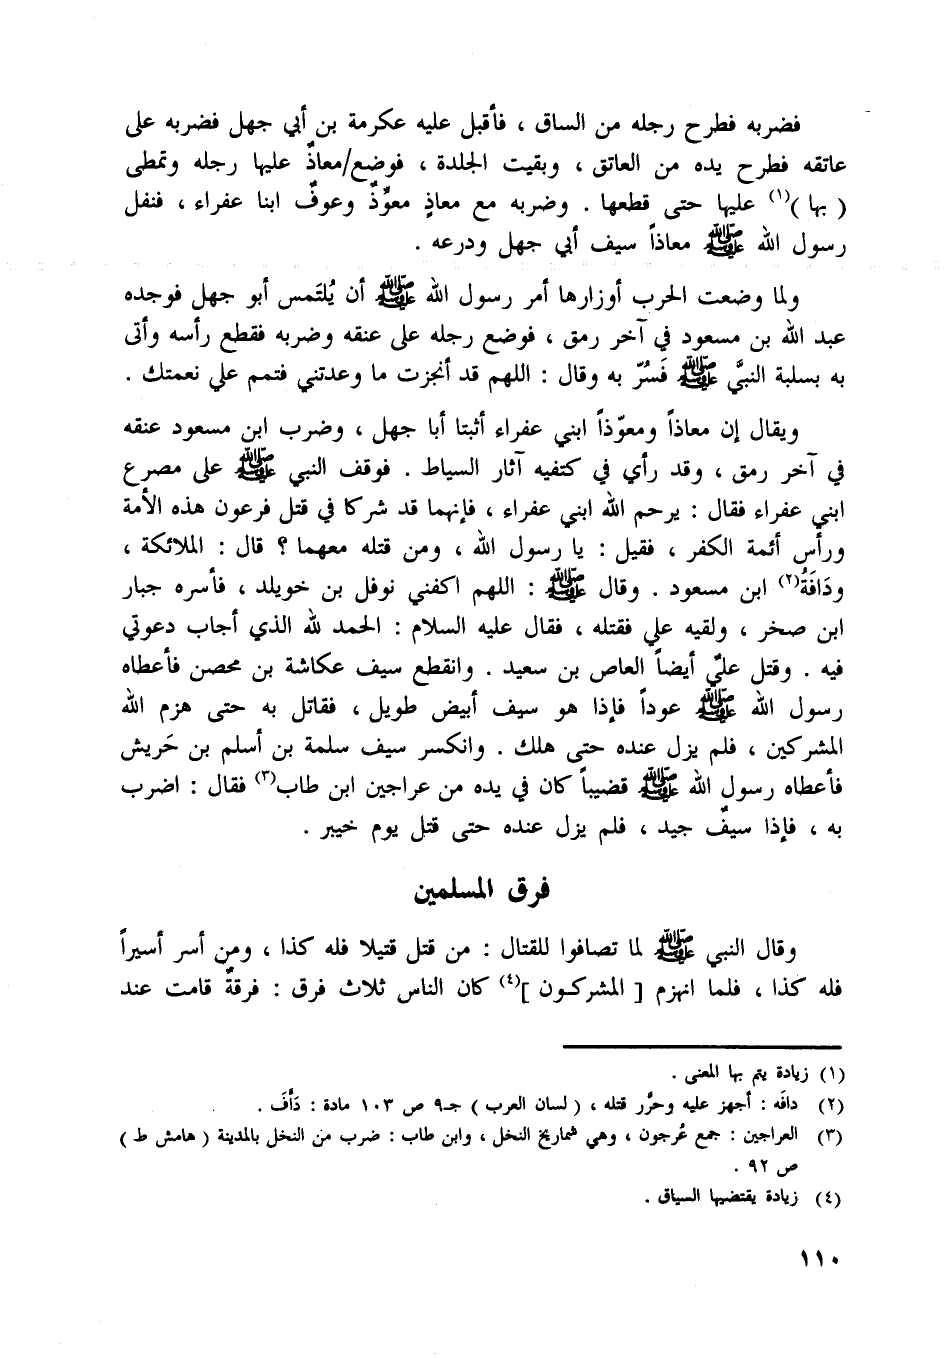 فضربه فطرح رجله من الساق ، فأقبل عليه عكرمة بن أبي جهل فضربه على
عاتقه فطرح يده من العاتق ، وبقيت الجلدة ، فوضع/معاذٌ عليها رجله وتمطى
( بها )(١) عليها حتى قطعها . وضربه مع معاذٍ معوِّذٌ وعوفٌ ابنا عفراء ، فنفل
رسول الله ﷺ معاذاً سيف أبي جهل ودرعه .
ولما وضعت الحرب أوزارها أمر رسول الله ﷺ أن يُلتَمس أبو جهل فوجده
عبد الله بن مسعود في آخر رمق ، فوضع رجله على عنقه وضربه فقطع رأسه وأتى
به بسلبة النبيَّ ﷺ فَسُرّ به وقال : اللهم قد أنجزت ما وعدتني فتمم علي نعمتك .
ويقال إن معاذاً ومعوّذاً ابني عفراء أثبتا أبا جهل ، وضرب ابن مسعود عنقه
في آخر رمق ، وقد رأي في كتفيه آثار السياط . فوقف النبي ﷺ على مصرع
ابني عفراء فقال : يرحم الله ابني عفراء ، فإنهما قد شركا في قتل فرعون هذه الأمة
ورأس أئمة الكفر ، فقيل : يا رسول الله ، ومن قتله معهما ؟ قال : الملائكة ،
ودَافَهُ(٢) ابن مسعود . وقال ﷺ : اللهم اكفني نوفل بن خويلد ، فأسره جبار
ابن صخر ، ولقيه علي فقتله ، فقال عليه السلام : الحمد لله الذي أجاب دعوتي
فيه . وقتل عليّ أيضاً العاص بن سعيد . وانقطع سيف عكاشة بن محصن فأعطاه
رسول الله ﷺ عوداً فإذا هو سيف أبيض طويل ، فقاتل به حتى هزم الله
المشركين ، فلم يزل عنده حتى هلك . وانكسر سيف سلمة بن أسلم بن حَريش
فأعطاه رسول الله ﷺ قضيباً كان في يده من عراجين ابن طاب(٣) فقال : اضرب
به ، فإذا سيفٌ جيد ، فلم يزل عنده حتى قتل يوم خيبر .
فرق المسلمين
وقال النبي ﷺ لما تصافوا للقتال : من قتل قتيلا فله كذا ، ومن أسر أسيراً
فله كذا ، فلما انهزم [ المشركون ](٤) كان الناس ثلاث فرق : فرقةٌ قامت عند
(١) زيادة يتم بها المعنى .
(٢) دافَه : أجهز عليه وحرَّر قتله ، ( لسان العرب ) جـ٩ ص ١٠٣ مادة : دَأَفَ .
(٣) العراجين : جمع عُرجون ، وهي شماريخ النخل ، وابن طاب : ضرب من النخل بالمدينة ( هامش ط )
ص ٩٢ .
(٤) زيادة يقتضيها السياق .
١١٠